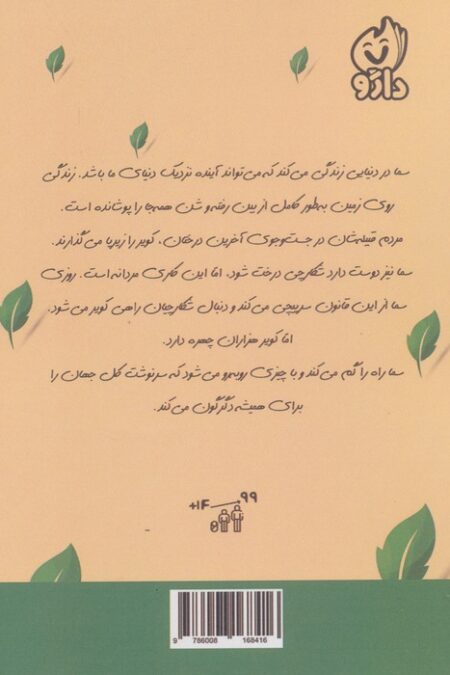 دارکو
سما در دنیایی زندگی می‌کند که می‌تواند آینده نزدیک دنیای ما باشد. زندگی
روی زمین به‌طور کامل از بین رفته و شن همه‌جا را پوشانده است.
مردم قبیله‌شان در جست‌وجوی آخرین درختان، کویر را زیر پا می‌گذارند.
سما نیز دوست دارد شکارچی درخت شود، اما این کاری مردانه است. روزی
سما از این قانون سرپیچی می‌کند و دنبال شکارچیان راهی کویر می‌شود.
امّا کویر هزاران چهره دارد.
سما راه را گم می‌کند و با چیزی روبه‌رو می‌شود که سرنوشت کل جهان را
برای همیشه دگرگون می‌کند.
+۱۴ ۹۹
9 786008 168416